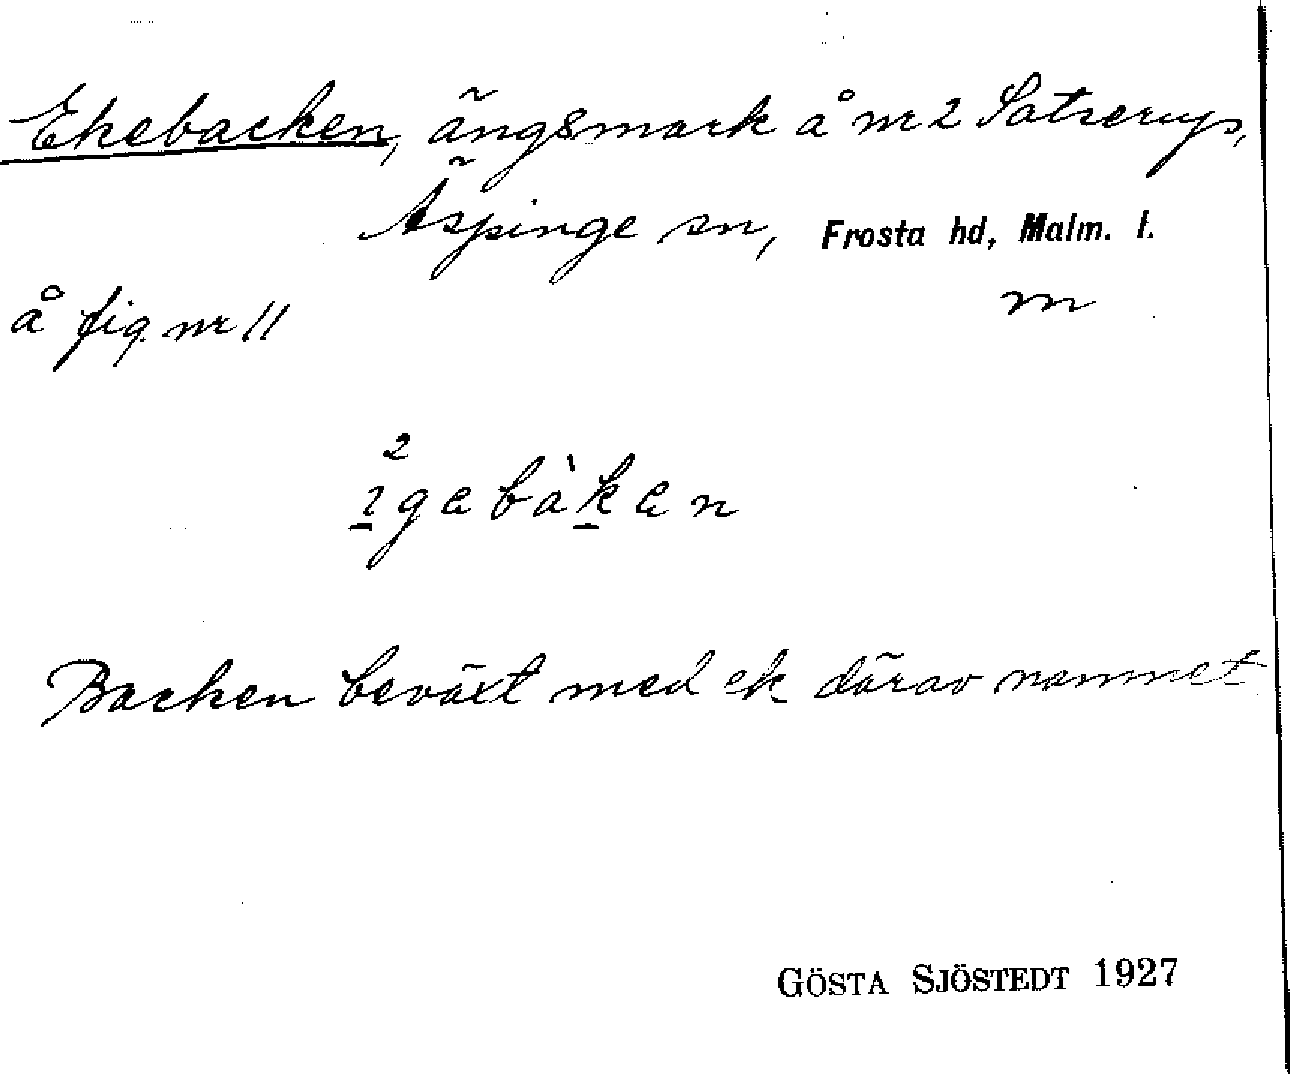 Ekebacken, ängsmark å nr 2 Satserup,
Äspinge sn, Frosta hd, Malm. l.
å fig. nr 11 m
Backen beväxt med ek därav namnet
GÖSTA SJÖSTEDT 1927